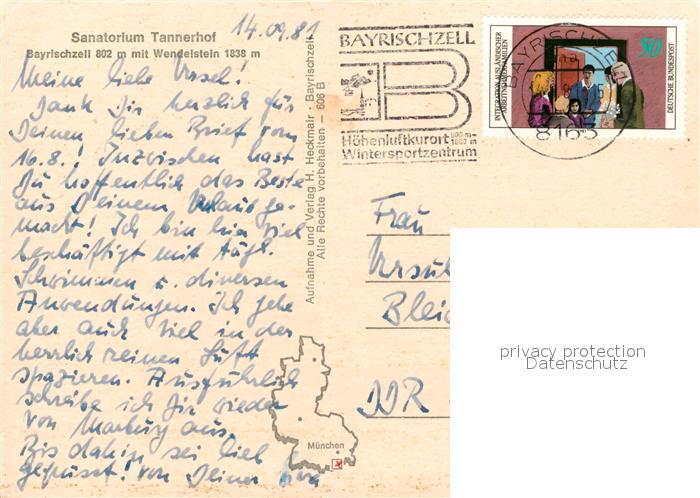 14.09.81
Sanatorium Tannerhof
Bayrischzell 802 m mit Wendelstein 1838 m
Meine liebe Ursel!
Dank Dir herzlich für
Deinen lieben Brief vom
16.8.! Inzwischen hast
Du hoffentlich das Beste
aus Deinem Urlaub ge-
macht! Ich bin hier viel
beschäftigt mit tägl.
Schwimmen u. diversen
Anwendungen. Ich gehe
aber auch viel in der
herrlich reinen Luft
spazieren. Ausführlich
schreibe ich Dir wieder
von Marburg aus.
Bis dahin sei lieb
gegrüsst! von Deiner
Aufnahme und Verlag H. Heckmair - Bayrischzell - 608 B
Alle Rechte vorbehalten
München
BAYRISCHZELL
B
Höhenluftkurort 800 m-
Wintersportzentrum
INTEGRATION AUSLÄNDISCHER
ARBEITNEHMERFAMILIEN
50
DEUTSCHE BUNDESPOST
BAYRISCHZELL
8163
Frau
Ursul
Bleic
DDR
privacy protection
Datenschutz